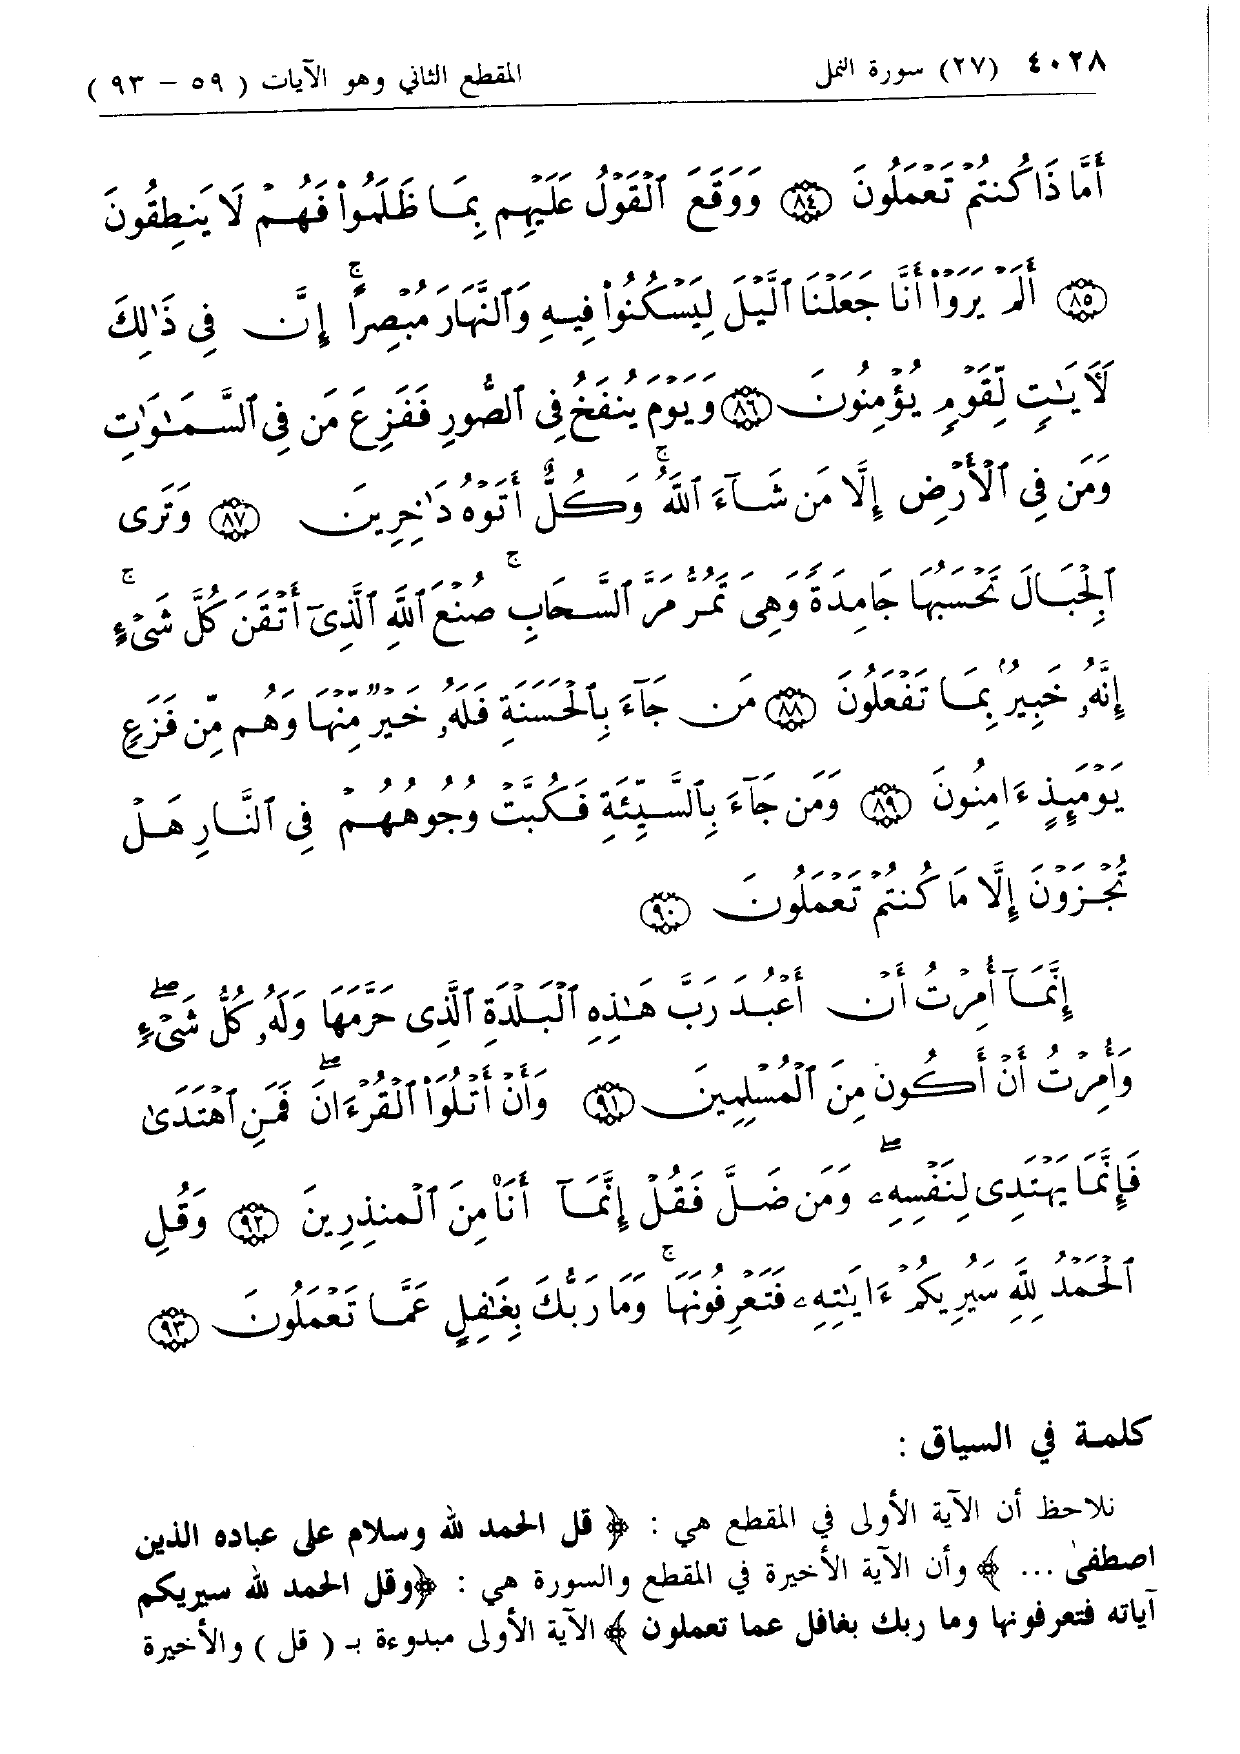 ٤٠٢٨ (٢٧) سورة النمل المقطع الثاني وهو الآيات ( ٥٩ – ٩٣ )
أَمَّا ذَا كُنتُمْ تَعْمَلُونَ ﴿٨٤﴾ وَوَقَعَ ٱلْقَوْلُ عَلَيْهِم بِمَا ظَلَمُوا۟ فَهُمْ لَا يَنطِقُونَ
﴿٨٥﴾ أَلَمْ يَرَوْا۟ أَنَّا جَعَلْنَا ٱلَّيْلَ لِيَسْكُنُوا۟ فِيهِ وَٱلنَّهَارَ مُبْصِرًا ۚ إِنَّ فِى ذَٰلِكَ
لَـَٔايَـٰتٍ لِّقَوْمٍ يُؤْمِنُونَ ﴿٨٦﴾ وَيَوْمَ يُنفَخُ فِى ٱلصُّورِ فَفَزِعَ مَن فِى ٱلسَّمَـٰوَٰتِ
وَمَن فِى ٱلْأَرْضِ إِلَّا مَن شَآءَ ٱللَّهُ ۚ وَكُلٌّ أَتَوْهُ دَٰخِرِينَ ﴿٨٧﴾ وَتَرَى
ٱلْجِبَالَ تَحْسَبُهَا جَامِدَةً وَهِىَ تَمُرُّ مَرَّ ٱلسَّحَابِ ۚ صُنْعَ ٱللَّهِ ٱلَّذِىٓ أَتْقَنَ كُلَّ شَىْءٍ ۚ
إِنَّهُۥ خَبِيرٌۢ بِمَا تَفْعَلُونَ ﴿٨٨﴾ مَن جَآءَ بِٱلْحَسَنَةِ فَلَهُۥ خَيْرٌ مِّنْهَا وَهُم مِّن فَزَعٍ
يَوْمَئِذٍ ءَامِنُونَ ﴿٨٩﴾ وَمَن جَآءَ بِٱلسَّيِّئَةِ فَكُبَّتْ وُجُوهُهُمْ فِى ٱلنَّارِ هَلْ
تُجْزَوْنَ إِلَّا مَا كُنتُمْ تَعْمَلُونَ ﴿٩٠﴾
إِنَّمَآ أُمِرْتُ أَنْ أَعْبُدَ رَبَّ هَـٰذِهِ ٱلْبَلْدَةِ ٱلَّذِى حَرَّمَهَا وَلَهُۥ كُلُّ شَىْءٍ ۖ
وَأُمِرْتُ أَنْ أَكُونَ مِنَ ٱلْمُسْلِمِينَ ﴿٩١﴾ وَأَنْ أَتْلُوَا۟ ٱلْقُرْءَانَ ۖ فَمَنِ ٱهْتَدَىٰ
فَإِنَّمَا يَهْتَدِى لِنَفْسِهِۦ ۖ وَمَن ضَلَّ فَقُلْ إِنَّمَآ أَنَا۠ مِنَ ٱلْمُنذِرِينَ ﴿٩٢﴾ وَقُلِ
ٱلْحَمْدُ لِلَّهِ سَيُرِيكُمْ ءَايَـٰتِهِۦ فَتَعْرِفُونَهَا ۚ وَمَا رَبُّكَ بِغَـٰفِلٍ عَمَّا تَعْمَلُونَ ﴿٩٣﴾
كلمة في السياق :
نلاحظ أن الآية الأولى في المقطع هي : ﴿ قل الحمد لله وسلام على عباده الذين
اصطفىٰ ... ﴾ وأن الآية الأخيرة في المقطع والسورة هي : ﴿وقل الحمد لله سيريكم
آياته فتعرفونها وما ربك بغافل عما تعملون ﴾ الآية الأولى مبدوءة بـ ( قل ) والأخيرة